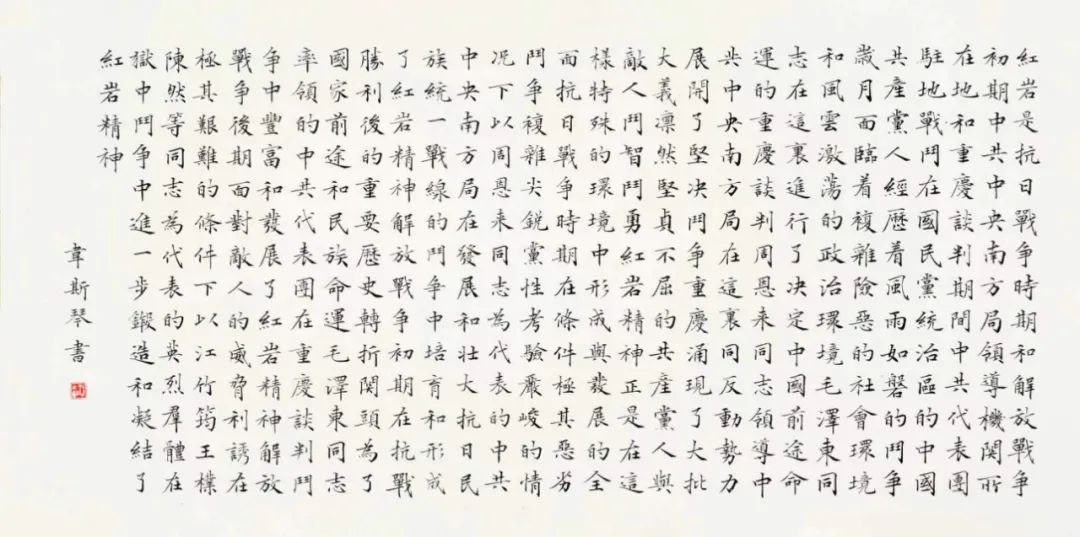 紅岩是抗日戰争時期和解放戰争
初期中共中央南方局領導機関所
在地和重慶談判期間中共代表團
駐地戰鬥在國民黨統治區的中國
共產黨人經歷着風雨如磐的鬥争
歲月面臨着複雜險惡的社會環境
和風雲激蕩的政治環境毛澤東同
志在這裏進行了决定中國前途命
運的重慶談判周恩来同志領導中
共中央南方局在這裏同反動勢力
展開了堅决鬥争重慶涌現了大批
大義凛然堅貞不屈的共產黨人與
敵人鬥智鬥勇紅岩精神正是在這
樣特殊的環境中形成與發展的全
面抗日戰争時期在條件極其惡劣
鬥争複雜尖鋭黨性考驗嚴峻的情
况下以周恩来同志為代表的中共
中央南方局在發展和壮大抗日民
族統一戰線的鬥争中培育和形成
了紅岩精神解放戰争初期在抗戰
勝利後的重要歷史轉折関頭為了
國家前途和民族命運毛澤東同志
率領的中共代表團在重慶談判鬥
争中豐富和發展了紅岩精神解放
戰争後期面對敵人的威脅利誘在
極其艱難的條件下以江竹筠王樸
陳然等同志為代表的英烈群體在
獄中鬥争中進一步鍛造和凝結了
紅岩精神
韋斯琴書